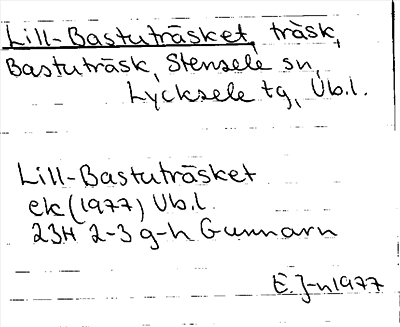 Lill-Bastuträsket, träsk,
Bastuträsk, Stensele sn,
Lycksele tg, Vb.l.
Lill-Bastuträsket
ek (1977) Vb.l.
23H 2-3 g-h Gunnarn
E.J-n 1977